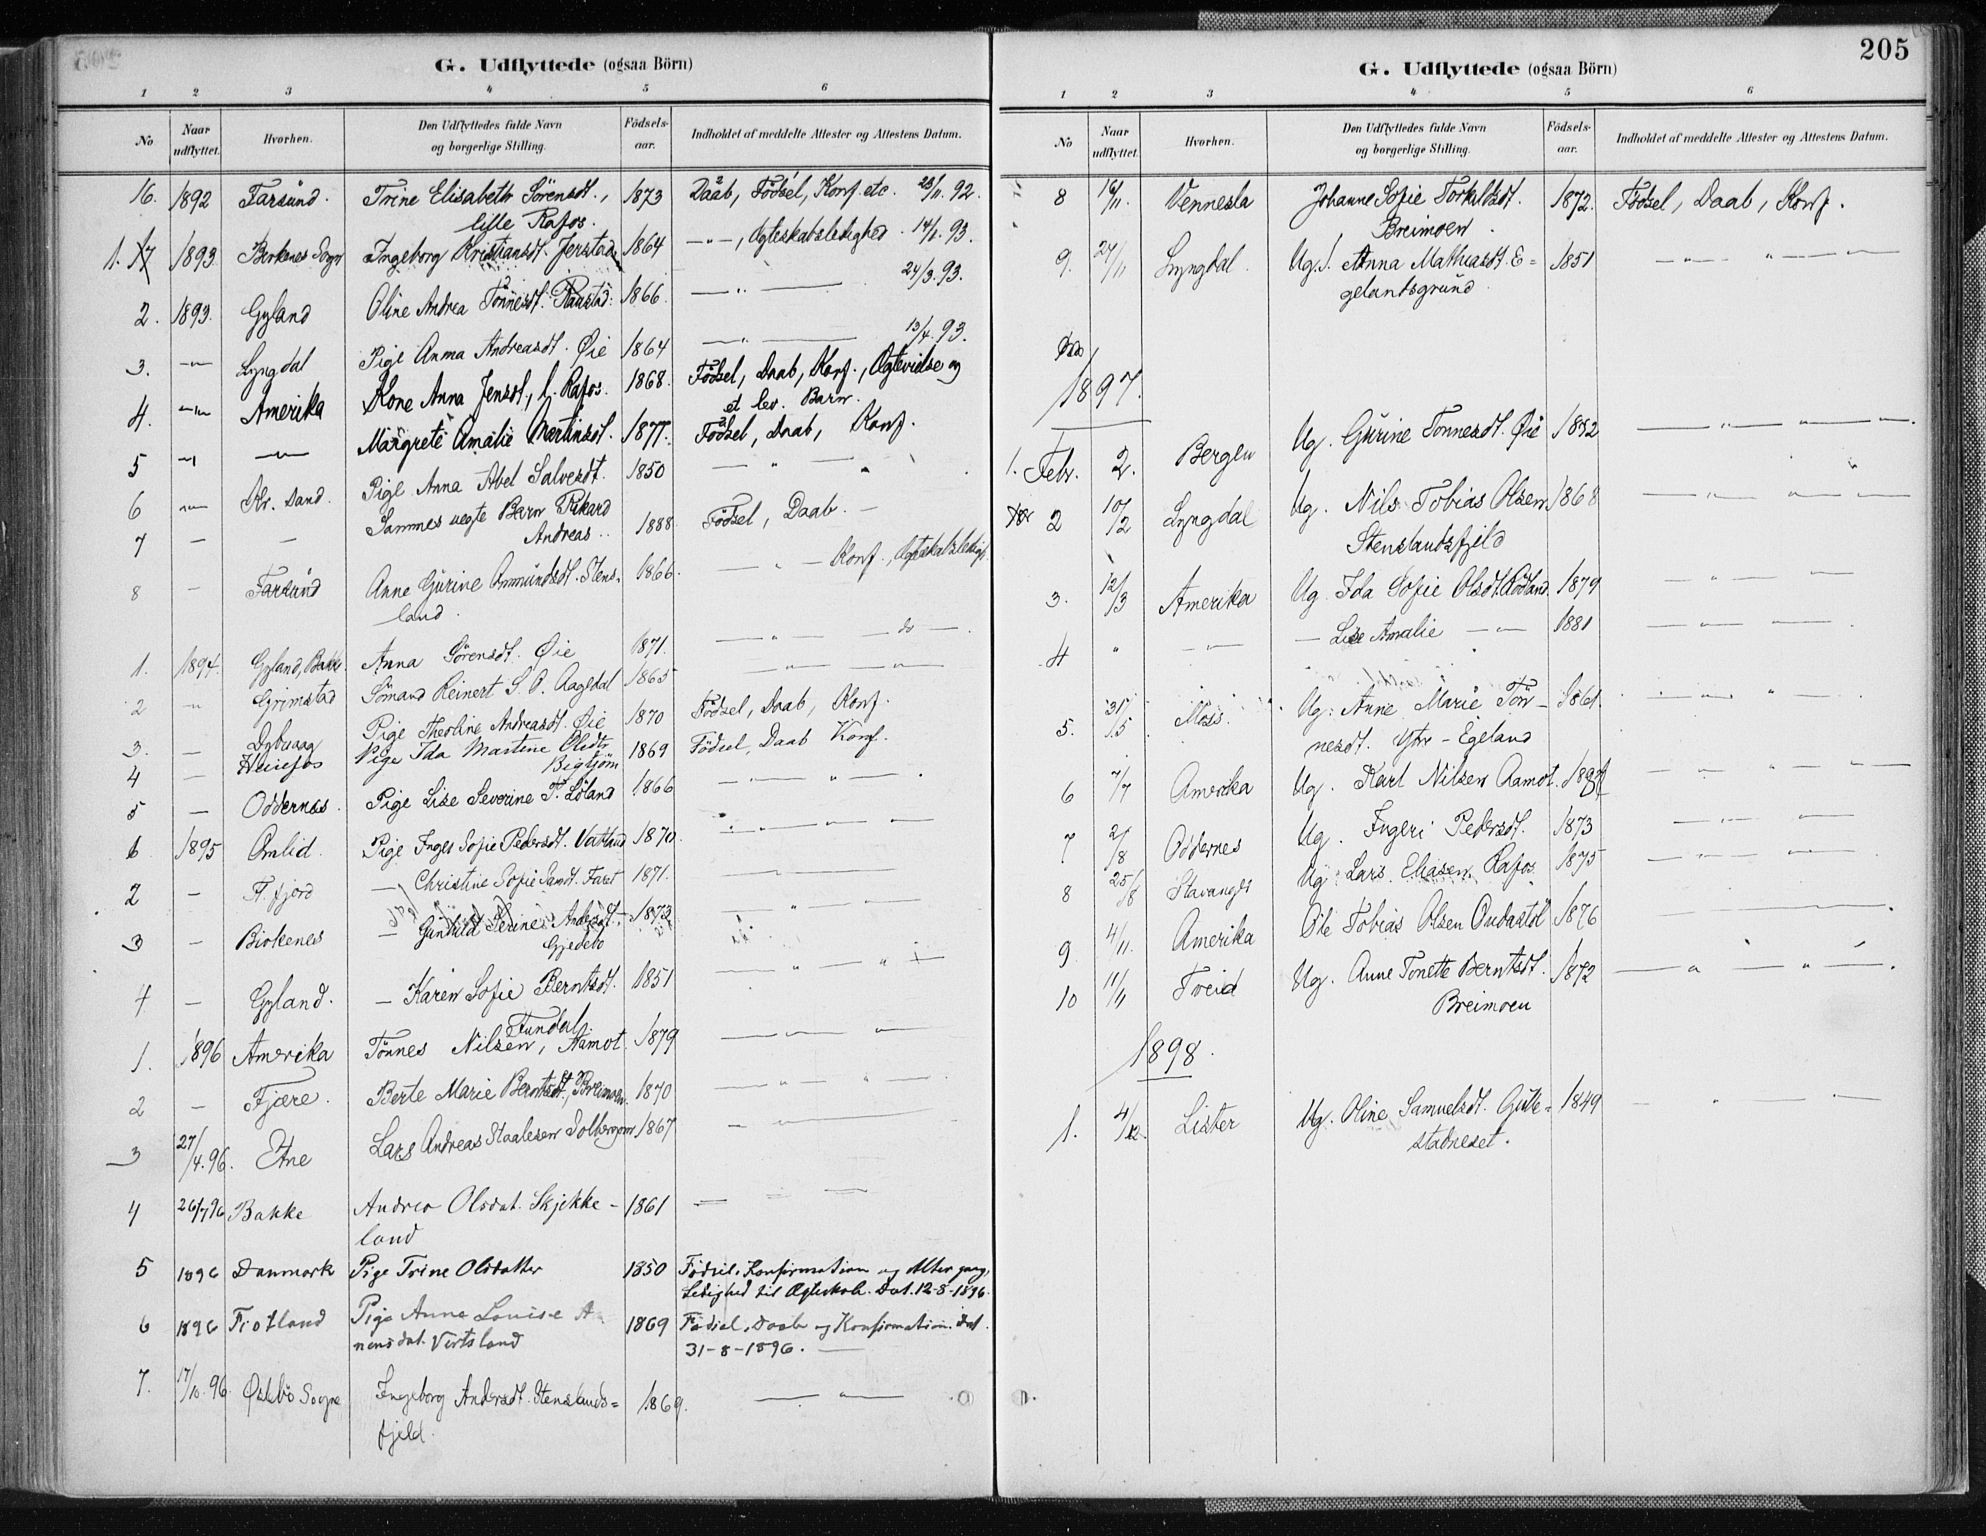 G. Udflyttede (ogsaa Börn)
1 2 3 4 5 6
No Naar udflyttet. Hvorhen. Den Udflyttedes fulde Navn og borgerlige Stilling. Födsels-aar. Indholdet af meddelte Attester og Attestens Datum.
16. 1892 Farsund. Trine Elisabeth Sörensdt., 1873 Daab, Födsel, Konf. etc. 23/11. 92.
lille Rafos.
1. 17 1893 Birkenes Sogn Ingeborg Kristiansdt. Jerstad 1864 —"—, Ægteskabsledighed. 14/1. 93.
2. 1893. Gyland Oline Andrea Tönnesdt. 1866. —"— 24/3. 93.
3. —"— Lyngdal Pige Anna Andreasdt. Øie 1864 —"— 13/4. 93.
4. —"— Amerika Kone Anna Jensdt., l. Rafos. 1868. Födsel, Daab, Konf., Ægtevielse og
et lev. Barn.
5 —"— —"— Margrete Amalie Martinsdt. 1877. Födsel, Daab, Konf.
6 —"— Kr. Sand. Pige Anna Abel Salvesdt. 1850 — " —
7 — — Sammes uegte Barn Rikard
Andreas.. 1888. Födsel, Daab. —
8 — Farsund Anne Gurine Anmundsdt. Stens- 1866. — " — Konf., Ægteskabsledigh.
land.
1. 1894. Gyland, Bakke. Anna Sörensdt. Øie 1871. — " — do —
2 " Grimstad Sömand Reinert S. O. Aagedal 1865 — " — " —
3. — Dybvaag Pige Theoline Andreasdt. Øie 1870 Födsel, Daab, Konf.
4 — Heiefos Pige Ida Martine Olsdtr. 1869 Födsel, Daab Konf.
Bigtjöm
5 — Oddernes. Pige Lise Severine T. Löland 1866 — " — " — .
6 1895 Omlid. Pige Inger Sofie Pedersdt. Vatland 1870. — " — " —
2 — F. fjord — Christine Sofie Samdt. Faret 1871. — " — " —
3 — Birkenes — Gunhild Serine Andersdt. 1873 — " —
Gjedebo
4 — Gyland. — Karen Sofie Berntsdt. 1851 — " — " —
Tundal.
1. 1896 Amerika Tönnes Nilsen, Aamot. 1879 — " — " —
2 — Fjære. Berte Marie Berntsdt., Breimoen. 1870 — " — " —
3 27/4. 96. Etne Lars Andreas Staalesen 1867 — " —
4 26/7 96 Bakke Andrea Olsdat. Skjekke- 1861 — — —
land
5 1896 Danmark Pige Trine Olsdatter 1850 Födsel, Konfirmation og Altergang,
Ledighed til Ægteskab. Dat. 12-8-1896.
6 1896 Fiotland Pige Anne Louise A-
nensdat. Virtsland 1869 Födsel, Daab og Konfirmation. dat.
31-8-1896. —
7. 17/10. 96. Øslebö Sogne Ingeborg Andersdt. Stenslands= 1869. — " —
fjeld.
205
G. Udflyttede (ogsaa Börn)
1 2 3 4 5 6
No Naar udflyttet. Hvorhen. Den Udflyttedes fulde Navn og borgerlige Stilling. Födsels-aar. Indholdet af meddelte Attester og Attestens Datum.
8 16/11. Vennesla Johanne Sofie Torkildsdt. 1872. Födsel, Daab, Konf.
Breimoen.
9. 24/11 Lyngdal. Ug. Anna Mathiasdt. E= 1851 — " — " —
gelandsgrund.
1897.
1. Febr. 2. Bergen Ug. Gurine Tönnesdt. Øie 1852 — " — " —
2 10/2 Lyngdal Ug. Nils Tobias Olsen 1868 — " — " —
Stenslandsfjeld
3. 12/3 Amerika Ug. Ida Sofie Olsdt. Rödland. 1879 — " — " —
4 " — " — — Lise Amalie — " — 1881 — " —
5. 31/5. Moss. Ug. Anne Marie Tön- 1861. — " — " —
nesdt. Ytre-Egeland
6 7/7 Amerika Ug. Karl Nilsen Aamot. — " — " —
7 2/8 Oddernes Ug. Ingeri Pedersdt. 1873 — " —
8 25/8 Stavanger Ug. Lars Eliasen Rafos. 1875 — " — " —
9 4/11. Amerika Ole Tobias Olsen 1876 —
10 11/11 Tveid Ug. Anne Tonette Berntsdt. 1872 — " — " — .
Breimoen
1898.
1. 4/12. Lister Ug. Oline Samuelsdt. 1849 — " — " —